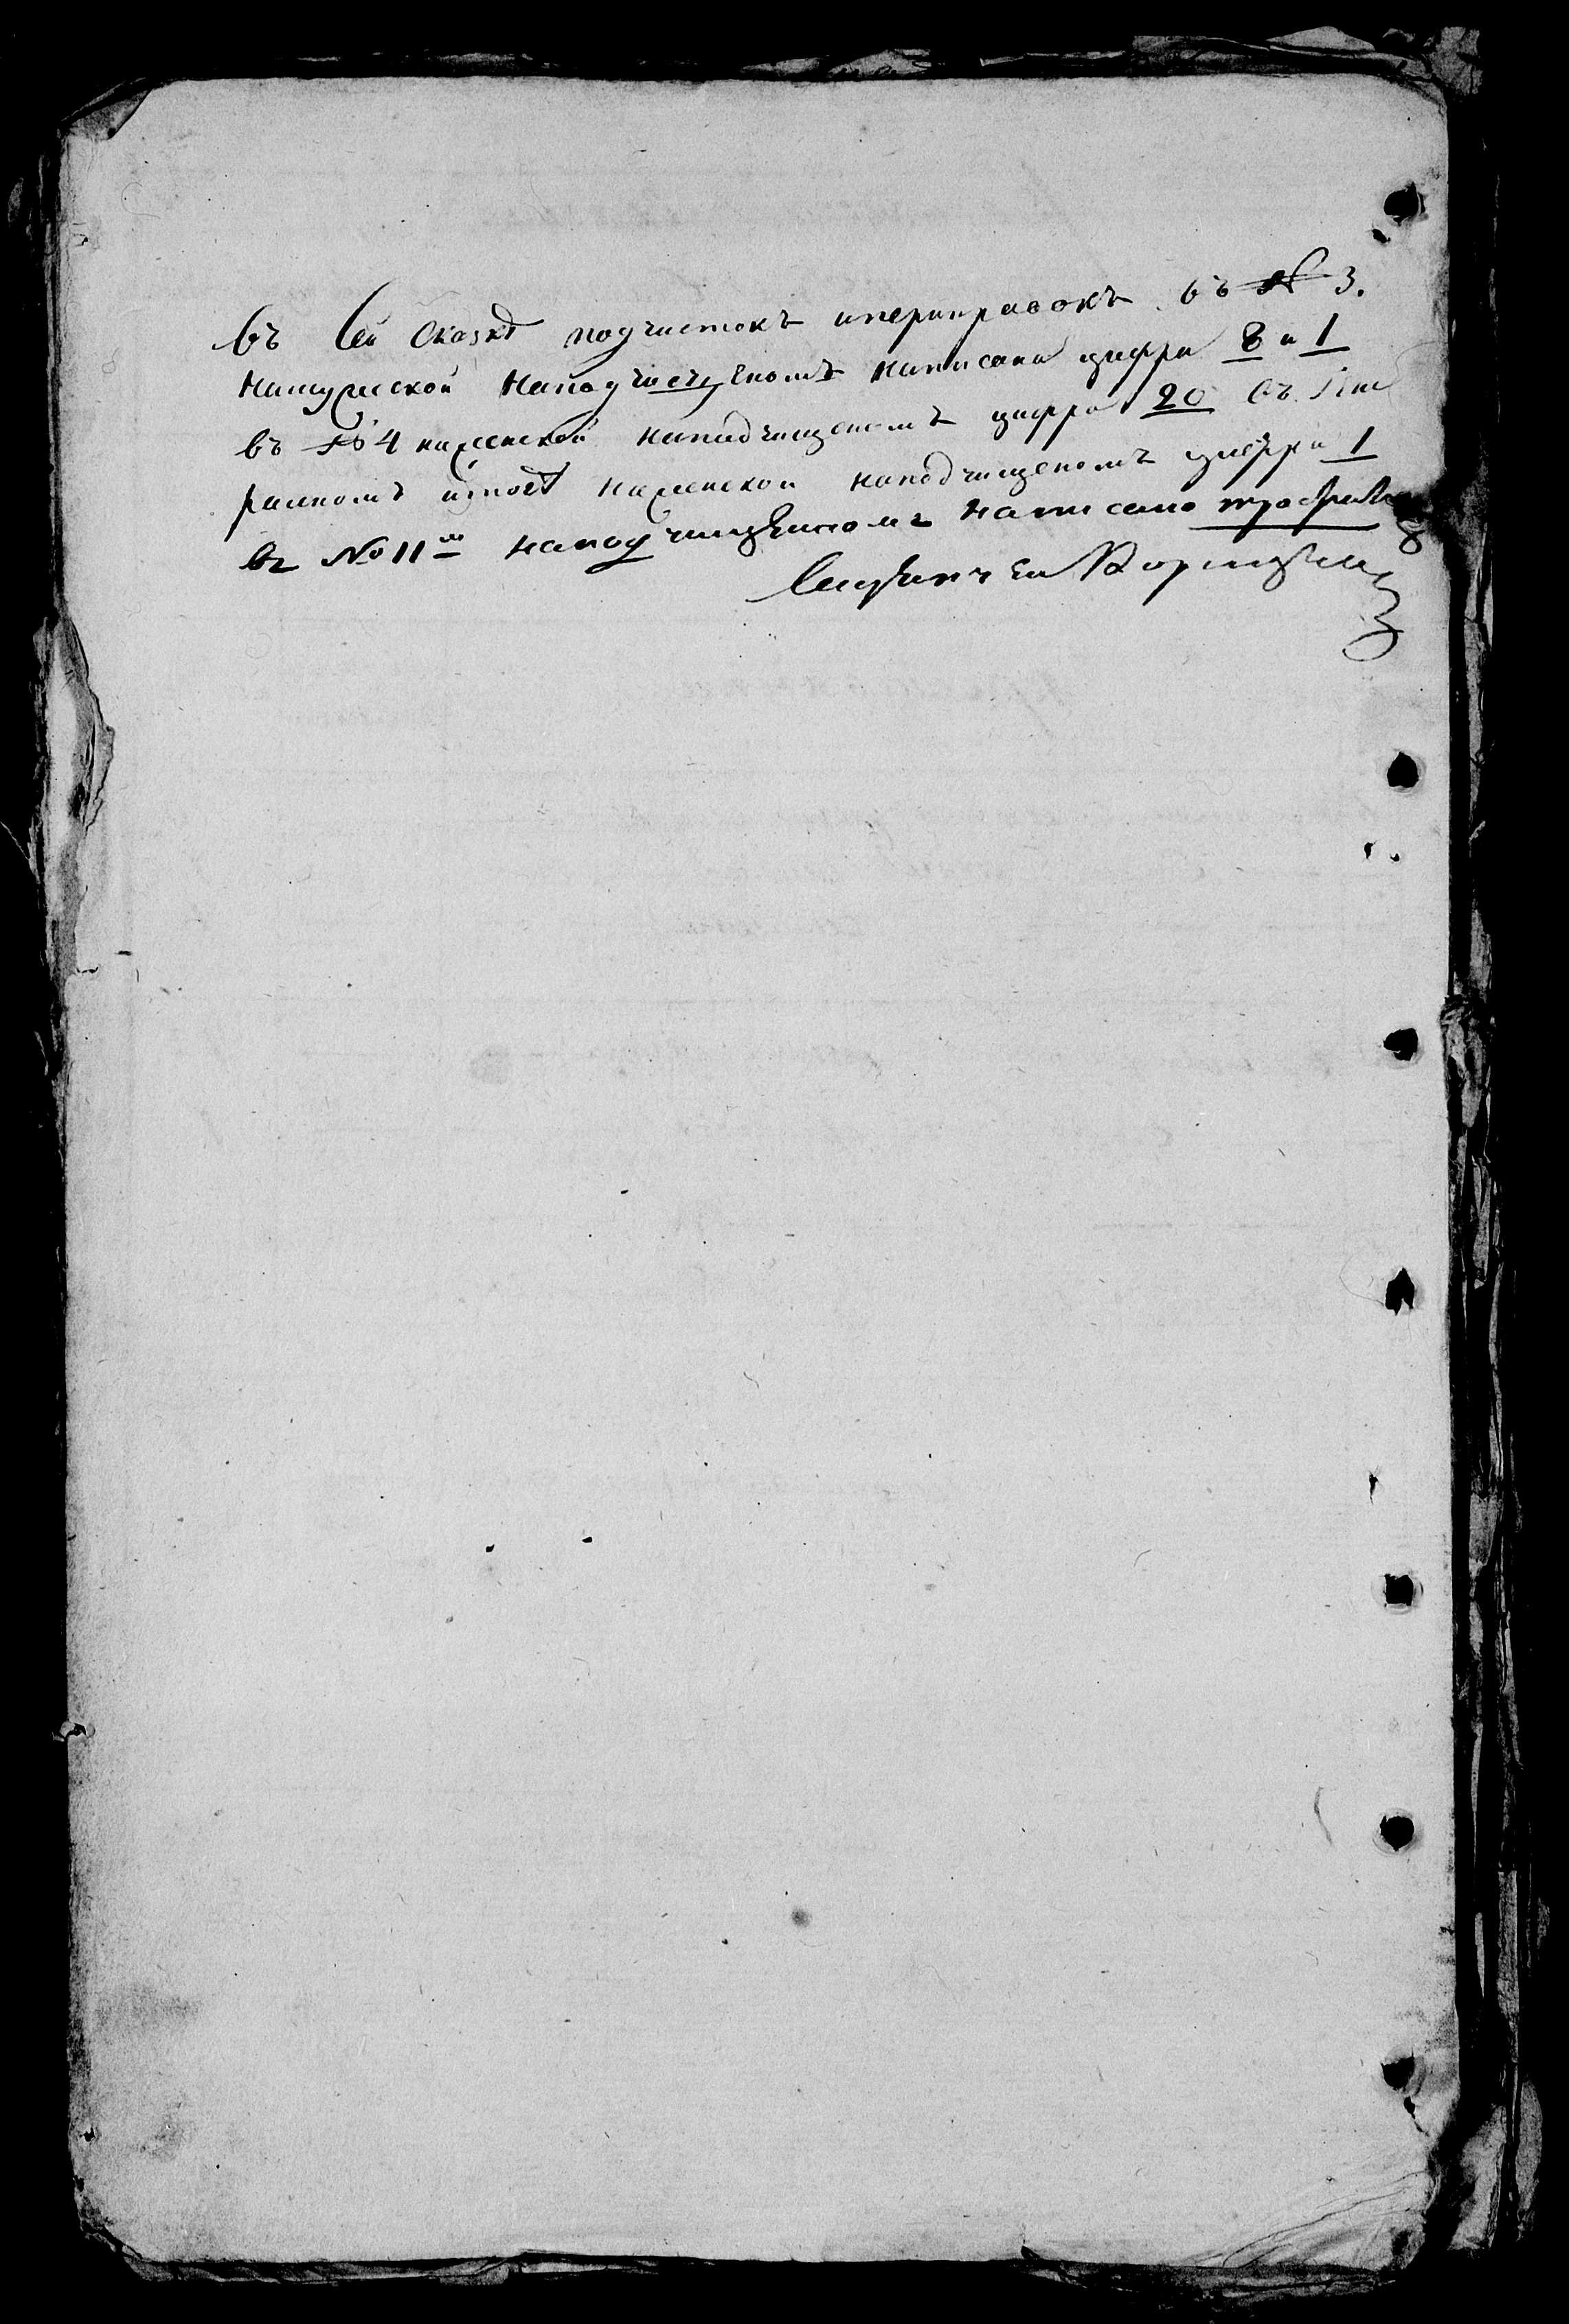 въ сей Сказкѣ подчистокъ ипериправокъ въ № 3.
намужеской наподчищеномъ написана цифра 8 и 1
въ № 4 наженской наподчищеномъ цифра 20 въ
номъ итогѣ наженской наподчищеномъ цифра 1
въ № 11м наподчищеномъ написано трофимъ